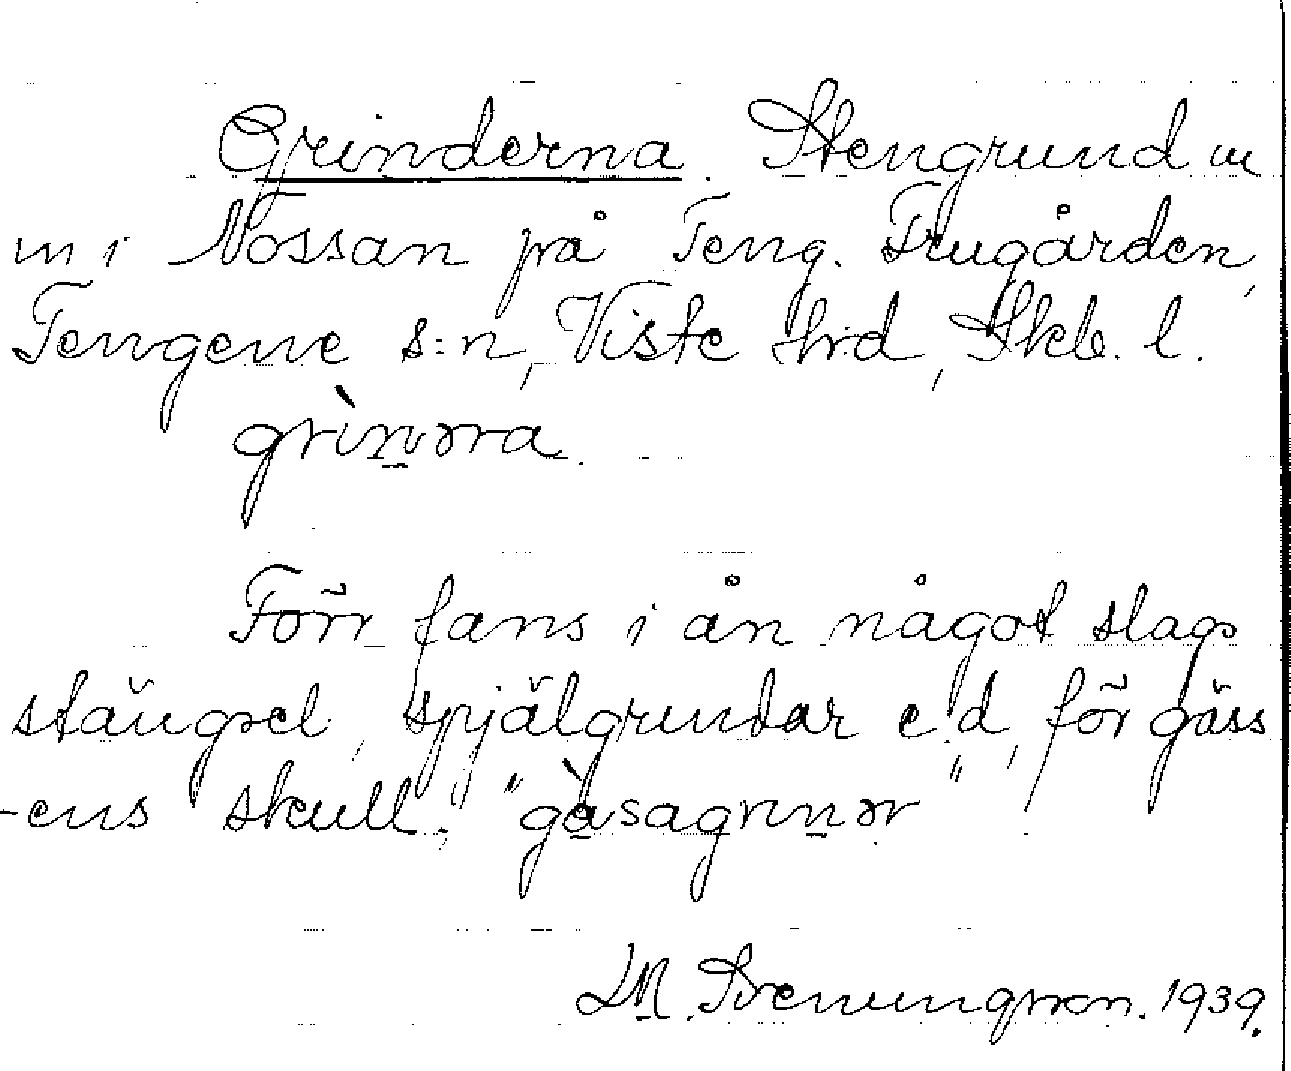 Grinderna. Stengrund m
m i Nossan på Teng. Frugården,
Tengene s:n, Viste hrd, Skb. l.
grìnəra.
Förr fans i ån något slags
stängsel, spjälgrindar e.d., för gäss
-ens skull; "gàsagrinər".
M. Svenungsson. 1939.